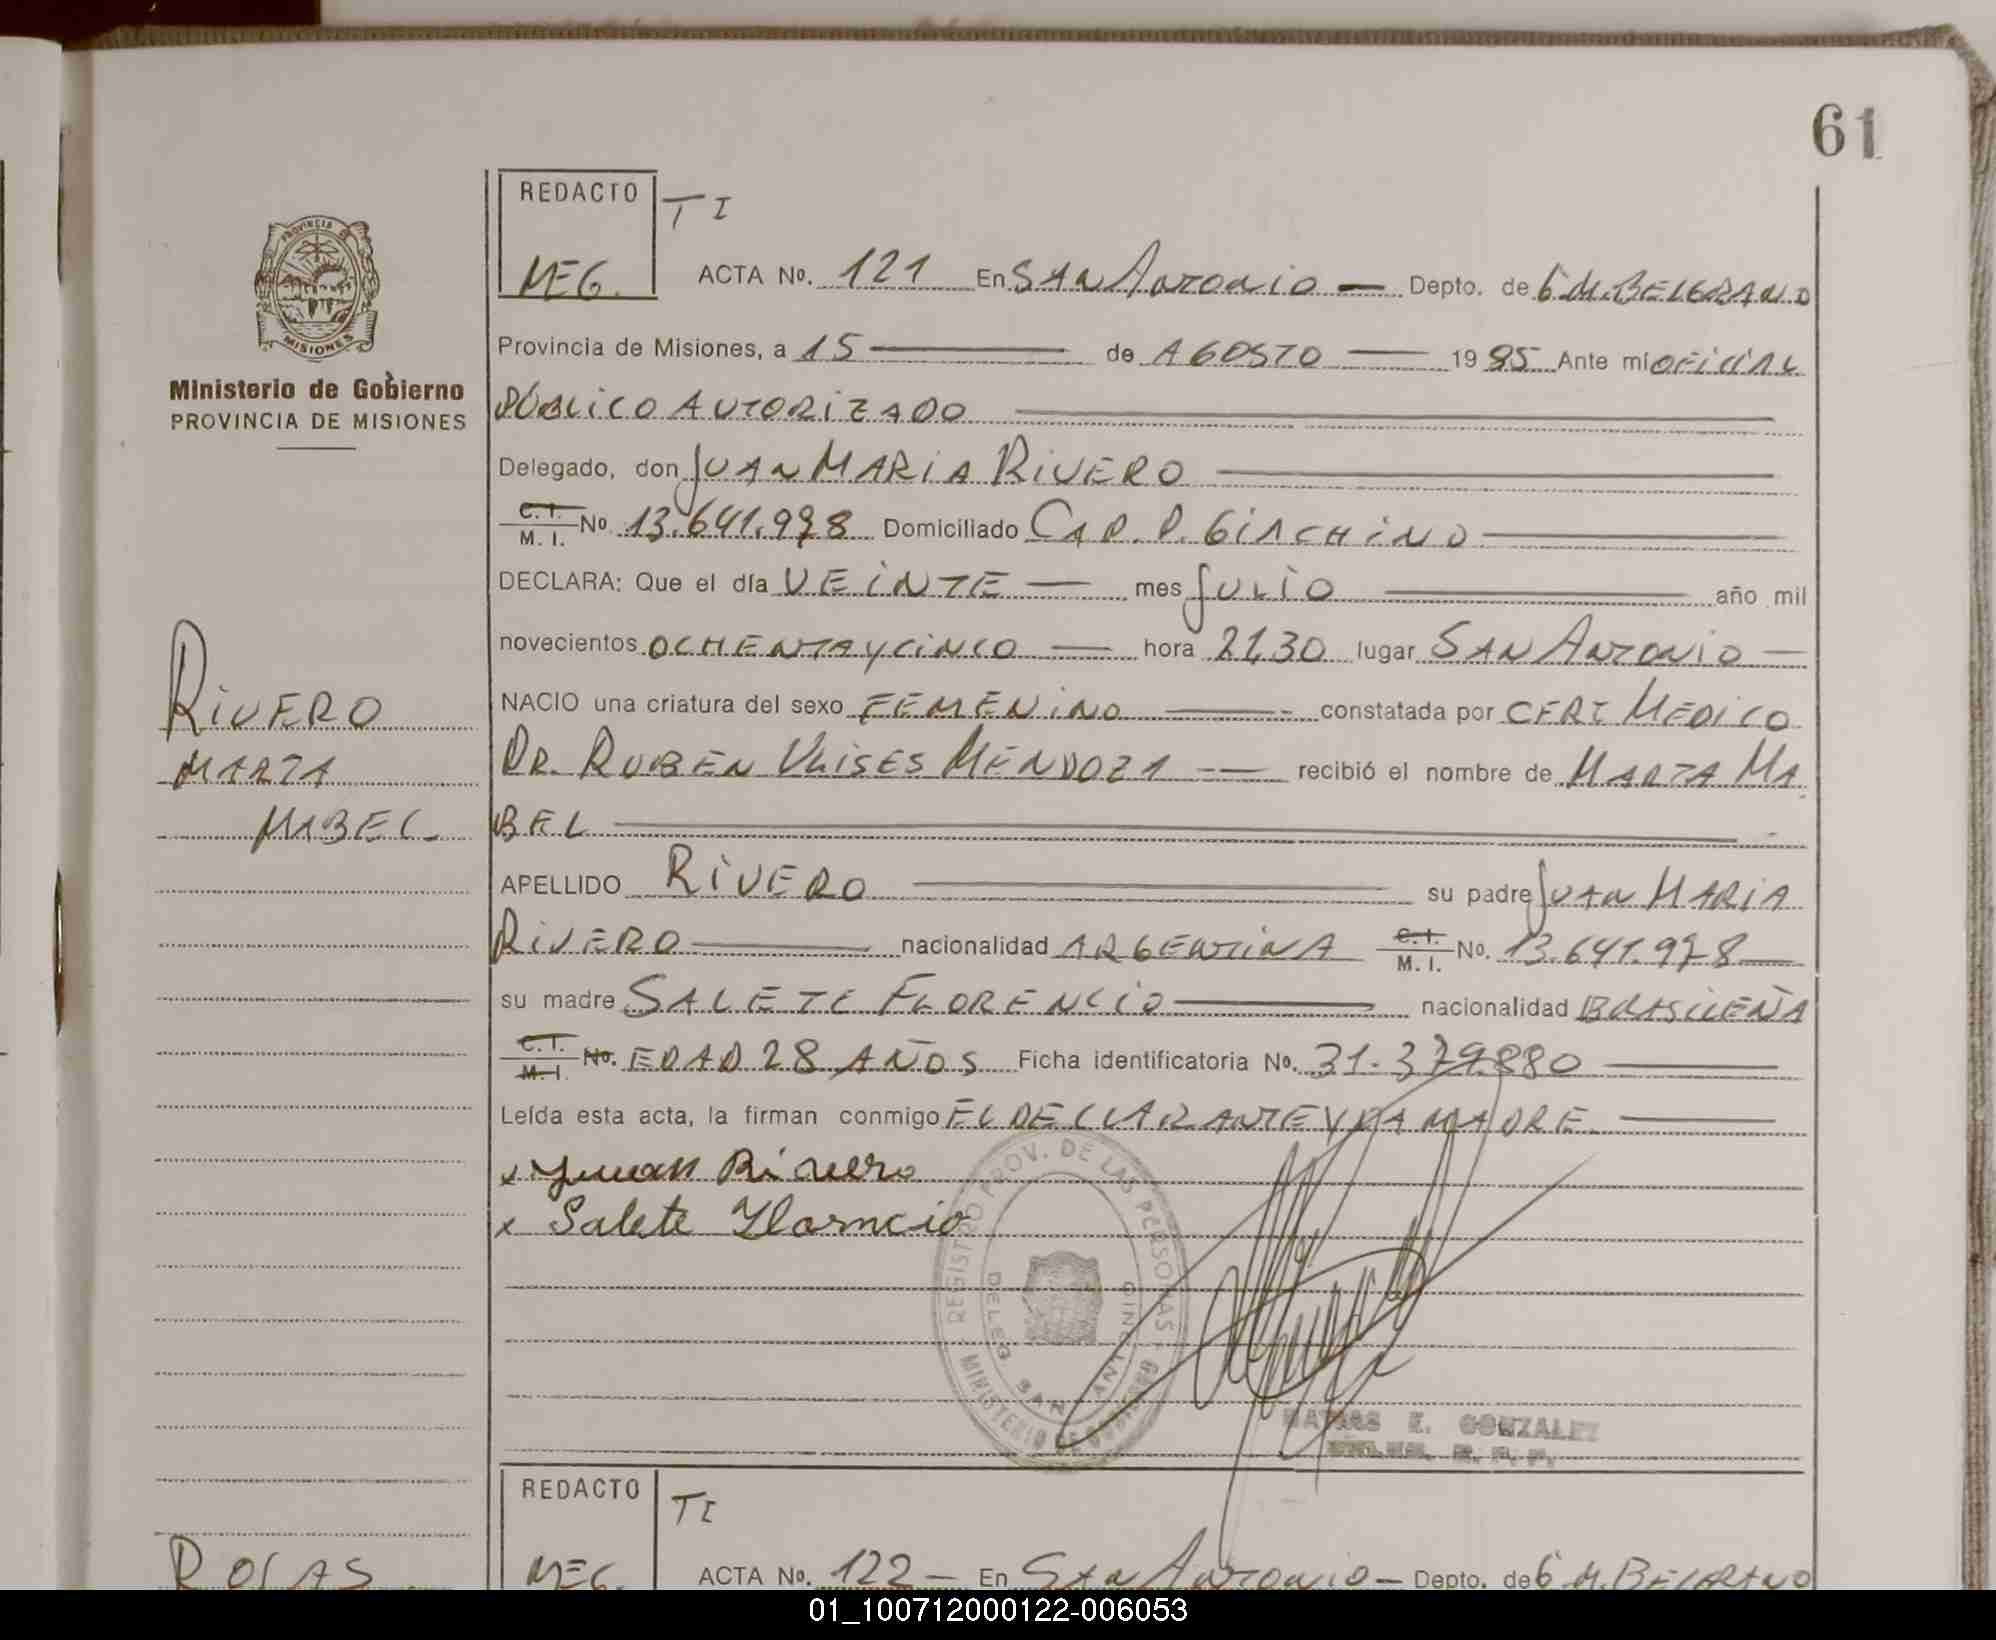 61
REDACTO
TI
MEG.
ACTA No. 121 En SAN ANTONIO — Depto. de G. M. BELGRANO
PROVINCIA DE
MISIONES
Ministerio de Gobierno
PROVINCIA DE MISIONES
Provincia de Misiones, a 15 — de AGOSTO — 1985 Ante mí OFICIAL
PÚBLICO AUTORIZADO —
Delegado, don JUAN MARIA RIVERO —
C. I. / M. I. No. 13.641.978 Domiciliado CAP. P. GIACHINO —
DECLARA: Que el día VEINTE — mes JULIO — año mil
novecientos OCHENTA Y CINCO — hora 21,30 lugar SAN ANTONIO —
RIVERO
MARTA
MABEL
NACIO una criatura del sexo FEMENINO — constatada por CERT MEDICO
DR. RUBEN ULISES MENDOZA — recibió el nombre de MARTA MA
BEL —
APELLIDO RIVERO — su padre JUAN MARIA
RIVERO — nacionalidad ARGENTINA C. I. / M. I. No. 13.641.978 —
su madre SALETE FLORENCIO — nacionalidad BRASILEÑA
C. I. / M. I. No. EDAD 28 AÑOS Ficha identificatoria No. 31.379.880 —
Leída esta acta, la firman conmigo EL DECLARANTE Y LA MADRE. —
x Juan Rivero
x Salete Florncio
REGISTRO PROV. DE LAS PERSONAS
MINISTERIO DE GOBIERNO
DELEG. SAN ANTONIO
MATIAS E. GONZALEZ
REDACTO
TI
MEG.
ACTA No. 122 — En SAN ANTONIO — Depto. de G. M. BELGRANO
ROJAS
01_100712000122-006053